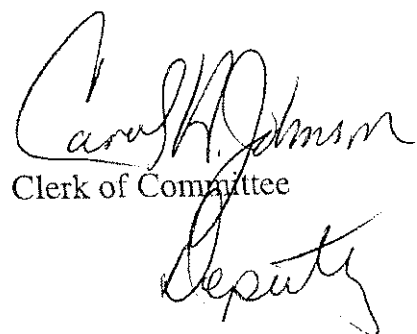 Carol K. Johnson
Clerk of Committee
Deputy